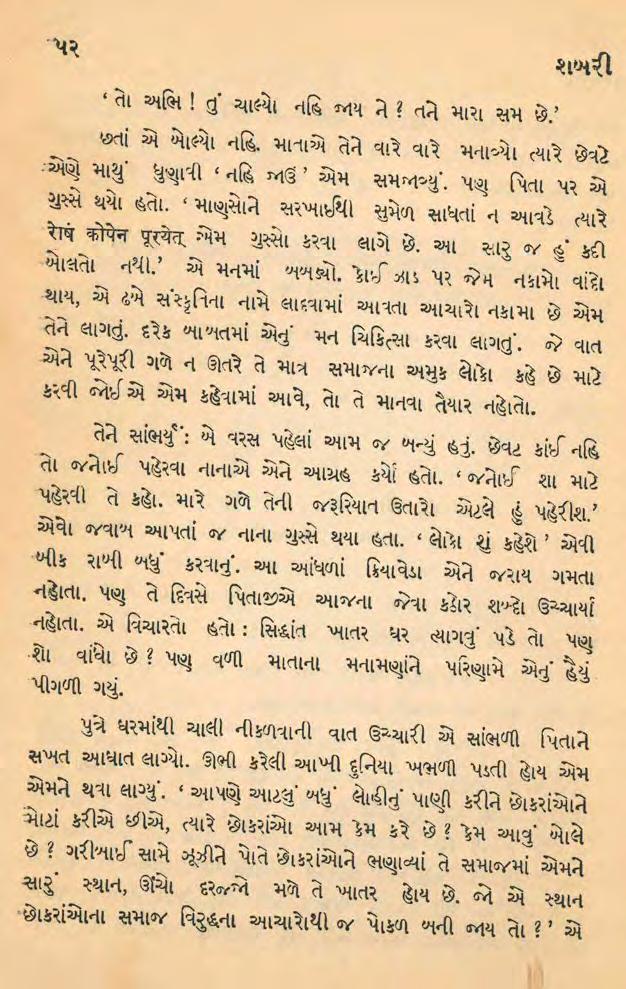 ૫૨
શબરી
‘ તો અભિ ! તું ચાલ્યો નહિ જાય ને ? તને મારા સમ છે.’
છતાં એ બોલ્યો નહિ. માતાએ તેને વારે વારે મનાવ્યો ત્યારે છેવટે
એણે માથું ધુણાવી ‘ નહિ જાઉં ’ એમ સમજાવ્યું. પણ પિતા પર એ
ગુસ્સે થયો હતો. ‘ માણસોને સરખાઈથી સુમેળ સાધતાં ન આવડે ત્યારે
शेषं कोपेन पूरयेत् એમ ગુસ્સો કરવા લાગે છે. આ સારુ જ હું કદી
બોલતો નથી.’ એ મનમાં બબડ્યો. કોઈ ઝાડ પર જેમ નકામો વાંદો
થાય, એ ઢબે સંસ્કૃતિના નામે લાદવામાં આવતા આચારો નકામા છે એમ
તેને લાગતું. દરેક બાબતમાં એનું મન ચિકિત્સા કરવા લાગતું. જે વાત
એને પૂરેપૂરી ગળે ન ઊતરે તે માત્ર સમાજના અમુક લોકો કહે છે માટે
કરવી જોઈએ એમ કહેવામાં આવે, તો તે માનવા તૈયાર નહોતો.
તેને સાંભર્યું : બે વરસ પહેલાં આમ જ બન્યું હતું. છેવટ કાંઈ નહિ
તો જનોઈ પહેરવા નાનાએ એને આગ્રહ કર્યો હતો. ‘ જનોઈ શા માટે
પહેરવી તે કહો. મારે ગળે તેની જરૂરિયાત ઉતારો એટલે હું પહેરીશ.’
એવો જવાબ આપતાં જ નાના ગુસ્સે થયા હતા. ‘ લોકો શું કહેશે ’ એવી
બીક રાખી બધું કરવાનું. આ આંધળાં ક્રિયાવેડા એને જરાય ગમતા
નહોતા. પણ તે દિવસે પિતાજીએ આજના જેવા કઠોર શબ્દો ઉચ્ચાર્યા
નહોતા. એ વિચારતો હતો : સિદ્ધાંત ખાતર ઘર ત્યાગવું પડે તો પણ
શો વાંધો છે ? પણ વળી માતાના મનામણાંને પરિણામે એનું હૈયું
પીગળી ગયું.
પુત્રે ઘરમાંથી ચાલી નીકળવાની વાત ઉચ્ચારી એ સાંભળી પિતાને
સખત આઘાત લાગ્યો. ઊભી કરેલી આખી દુનિયા ખળભળી પડતી હોય એમ
એમને થવા લાગ્યું. ‘ આપણે આટલું બધું લોહીનું પાણી કરીને છોકરાંઓને
મોટાં કરીએ છીએ, ત્યારે છોકરાંઓ આમ કેમ કરે છે ? કેમ આવું બોલે
છે ? ગરીબાઈ સામે ઝૂઝીને પોતે છોકરાંઓને ભણાવ્યાં તે સમાજમાં એમને
સારું સ્થાન, ઊંચો દરજ્જો મળે તે ખાતર હોય છે. જો એ સ્થાન
છોકરાંઓના સમાજ વિરુદ્ધના આચારોથી જ પોકળ બની જાય તો ? ’ એ